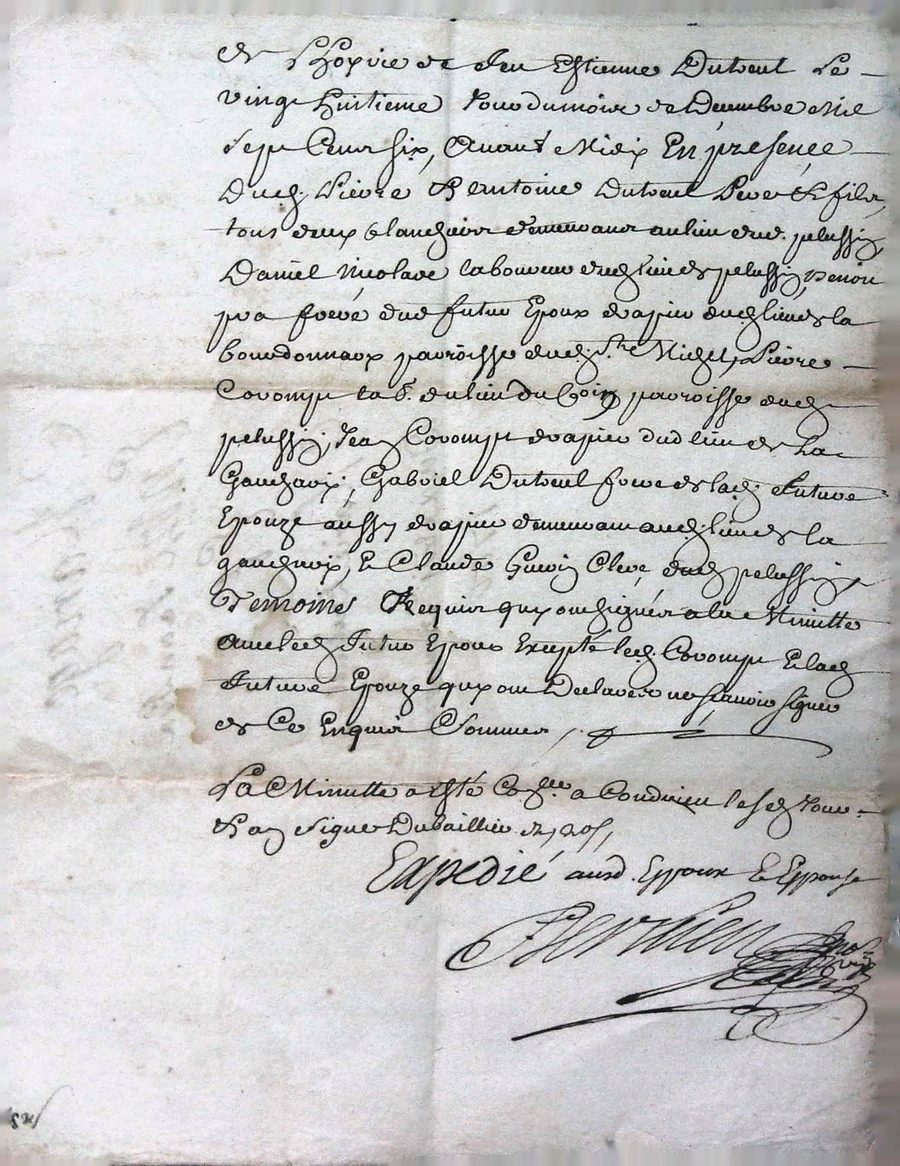 de Lhoyrie de feu Estienne Dutreul Le
vingt huitieme Jour du mois de Decembre Mil
Sept Cens Six, Avant Midy En presence
Dud. Pierre & Antoine Dutreul Pere & fils,
tous deux blanchiers demeurans au lieu dud. pelussin,
Daniel Nicolas laboureur dud. lieu de pelussin, Benoit
frere dud. futur Epoux drapier dud. lieu de la
bourdonnaux parroisse dud. St. Michel, Pierre
Couromp lab. du lieu du Coin parroisse dud.
pelussin, Jean Couromp drapier dud. lieu de La
Gauchaux, Gabriel Dutreul frere de lad. future
Epouze aussy drapier demeurant aud. lieu de la
gauchaux, & Claude Guerin Clerc dud. pelussin
Temoins Requis quy ont signés a la Minutte
avec led. futur Epoux Excepté led. Couromp & lad.
future Epouze quy ont Declarer ne scavoir signer
de Ce Enquis & Sommés
La Minutte a esté Con.llee a Condrieu les d. Jour
& an Signe Dubaillier
Expedié ausd. Eppoux & Eppouse